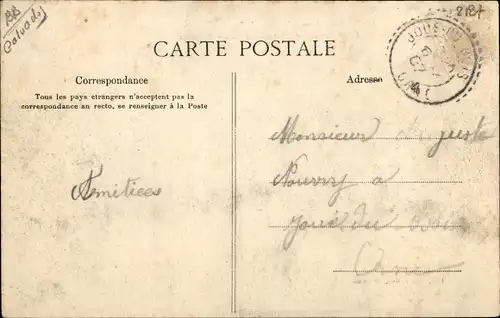 BB
Calvados
CARTE POSTALE
Correspondance
Tous les pays etrangers n'acceptent pas la
correspondance au recto, se renseigner à la Poste
Adresse
JOUÉ DU BOIS
Amitiées
Monsieur Auguste
Nourry a
Joué du Bois
Orne